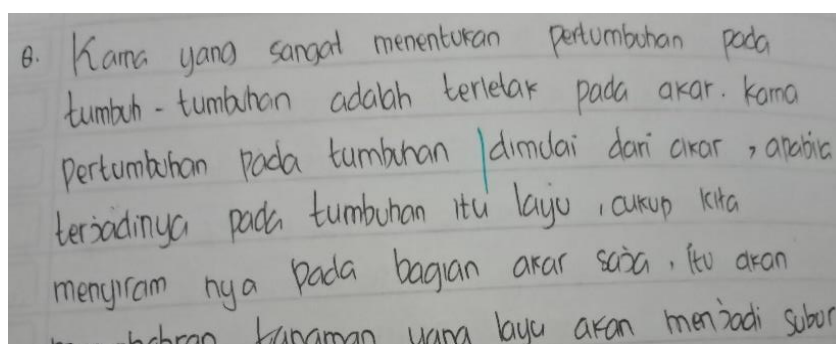 8. Karna yang sangat menentukan pertumbuhan pada
tumbuh - tumbuhan adalah terletak pada akar. Karna
Pertumbuhan pada tumbuhan dimulai dari akar, apabila
terjadinya pada tumbuhan itu layu, cukup kita
menyiram nya pada bagian akar saja, itu akan
tanaman yang layu akan menjadi subur